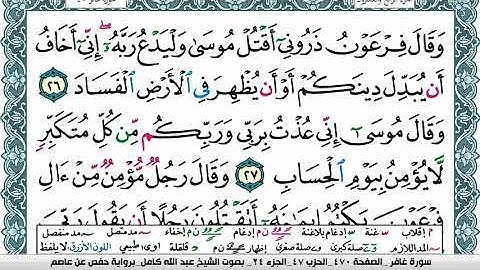 وَقَالَ فِرْعَوْنُ ذَرُونِيٓ أَقْتُلْ مُوسَىٰ وَلْيَدْعُ رَبَّهُۥٓ ۖ إِنِّيٓ أَخَافُ
أَن يُبَدِّلَ دِينَكُمْ أَوْ أَن يُظْهِرَ فِي ٱلْأَرْضِ ٱلْفَسَادَ ٢٦
وَقَالَ مُوسَىٰٓ إِنِّي عُذْتُ بِرَبِّي وَرَبِّكُم مِّن كُلِّ مُتَكَبِّرٖ
لَّا يُؤْمِنُ بِيَوْمِ ٱلْحِسَابِ ٢٧ وَقَالَ رَجُلٞ مُّؤْمِنٞ مِّنْ ءَالِ
فِرْعَوْنَ يَكْتُمُ إِيمَٰنَهُۥٓ أَتَقْتُلُونَ رَجُلًا أَن يَقُولَ رَبِّيَ
إقلاب غنة إدغام بلاغنة إدغام مد متصل مد منفصل
المد اللازم صلة كبرى صلة صغرى إظهار قلقلة طبيعي اللون الأزرق لا يلفظ
سورة غافر الصفحة ٤٧٠ الحزب ٤٧ الجزء ٢٤ بصوت الشيخ عبد الله كامل برواية حفص عن عاصم